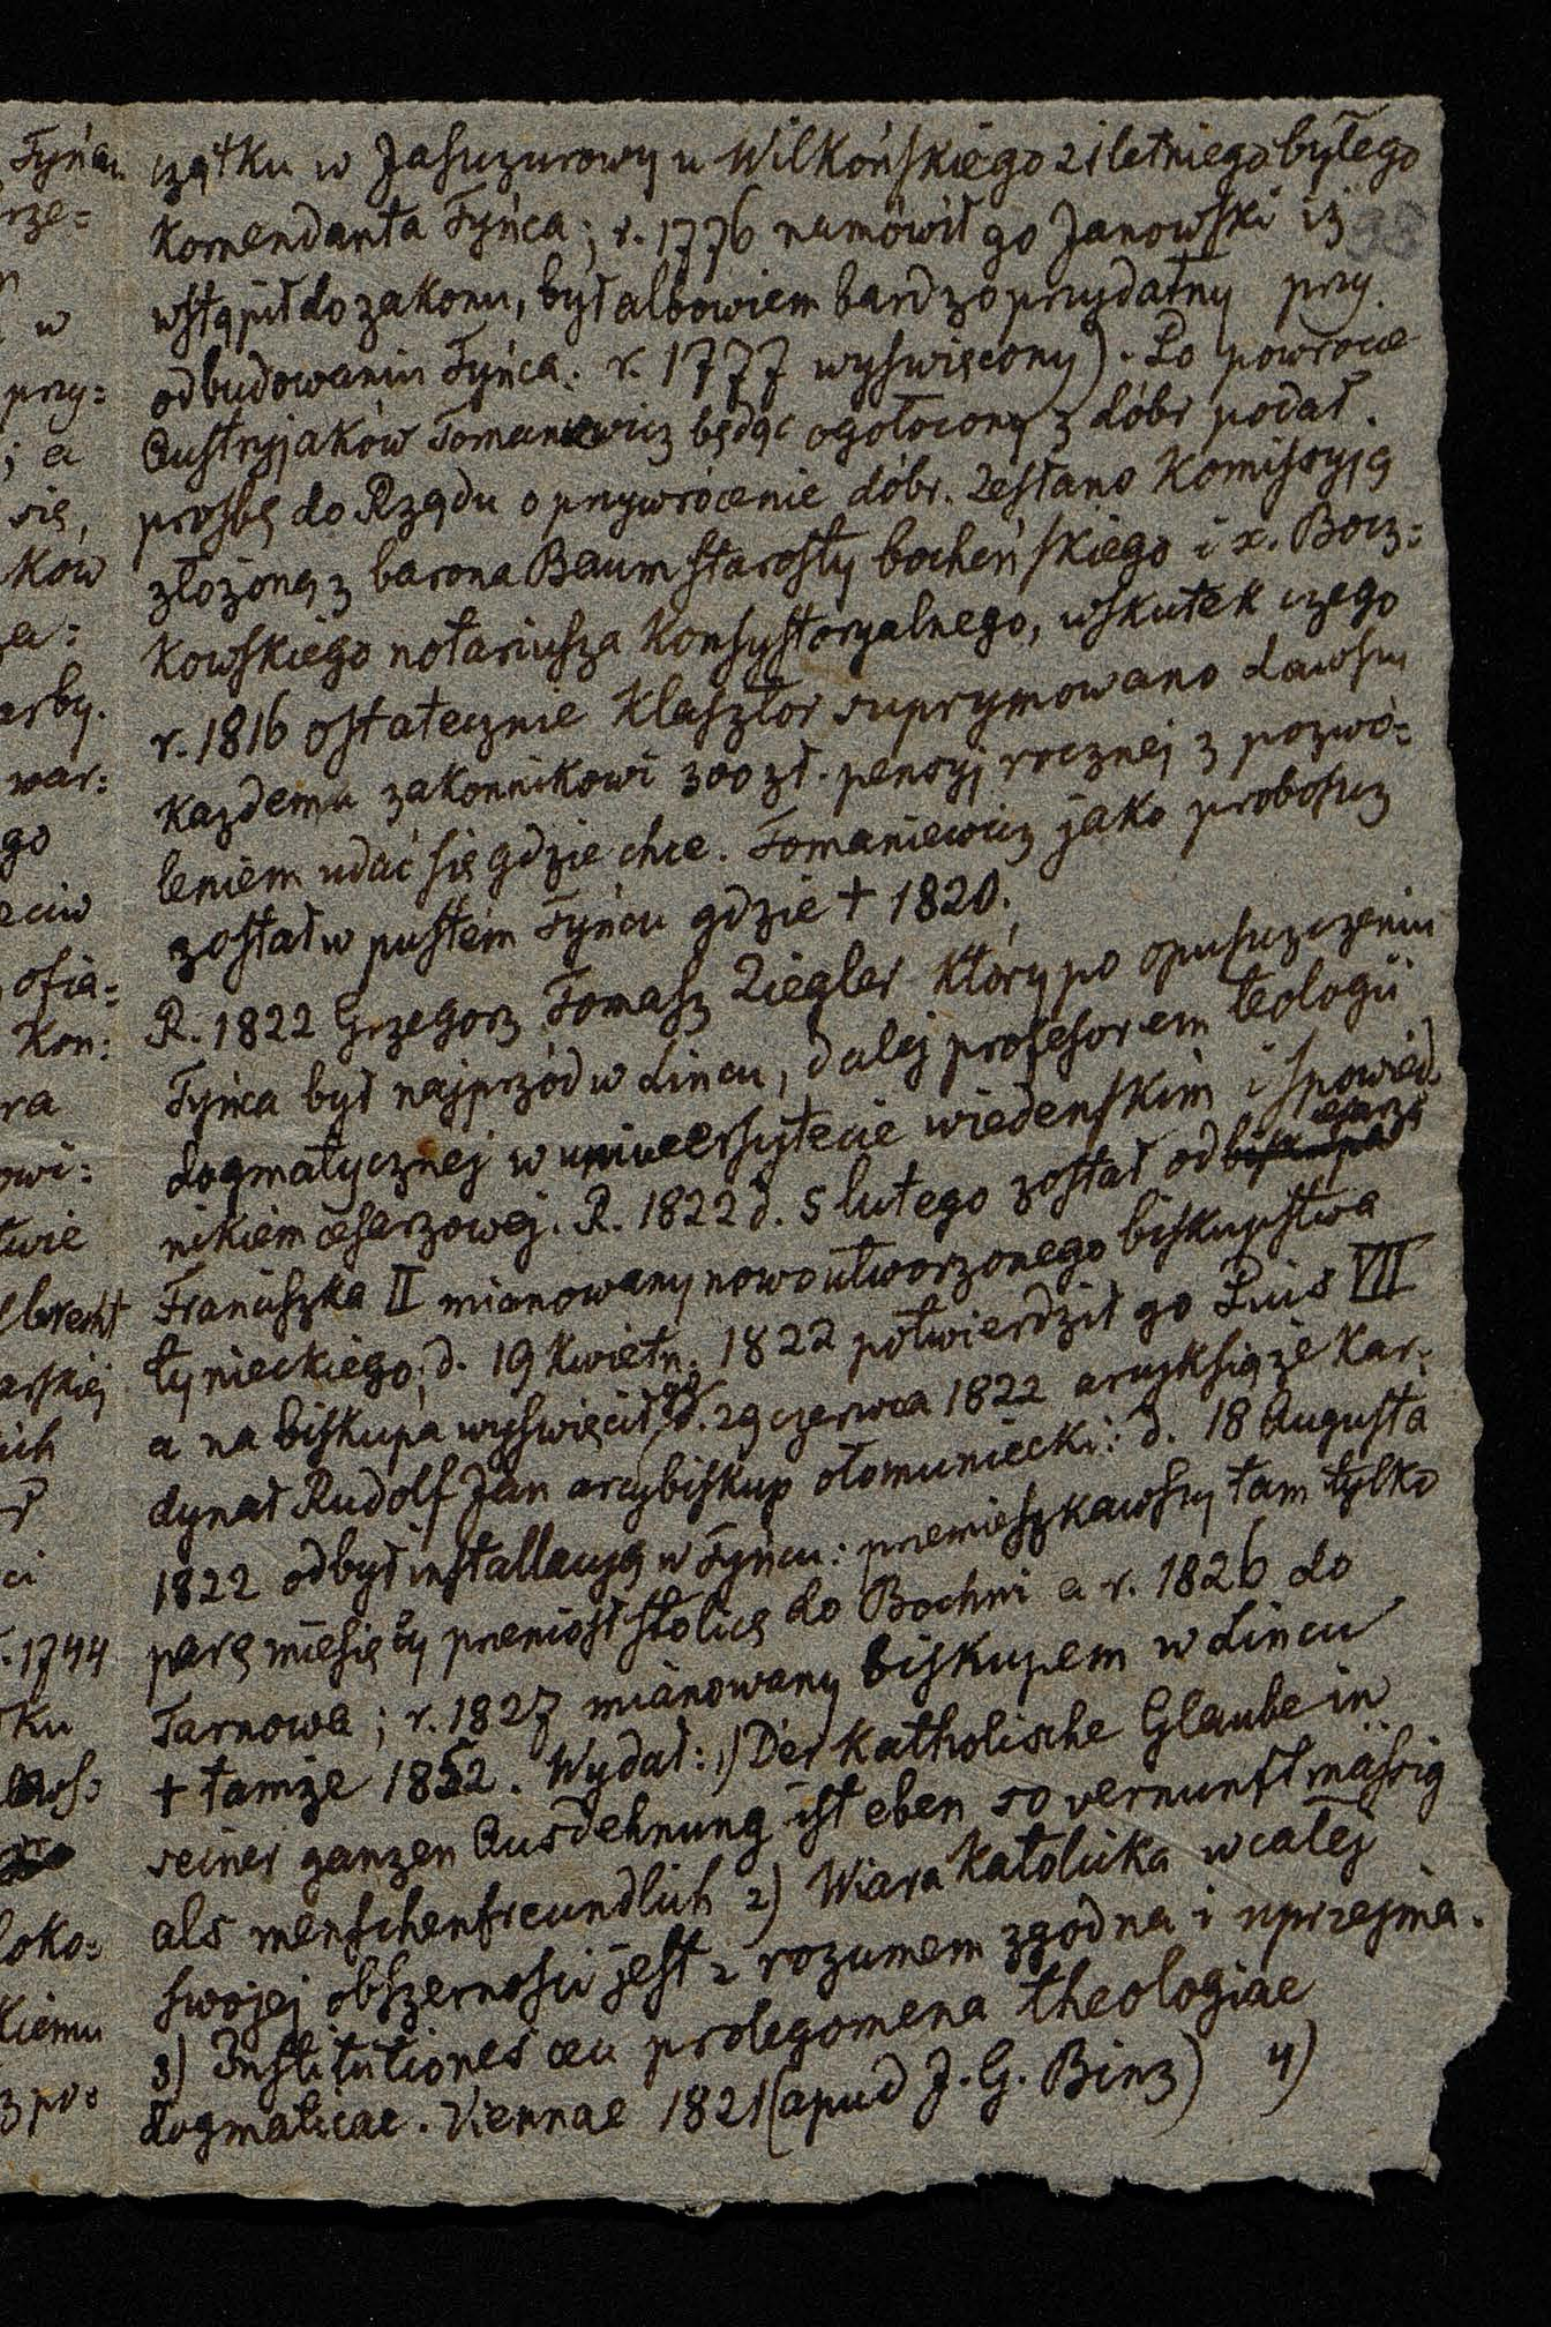 czątku w Jaszczurowy u Wilkońskiego 21 letniego byłego
Komendanta Tyńca; r. 1776 namówił go Janowski iż
wstąpił do zakonu, był albowiem bardzo przydatny przy
odbudowaniu Tyńca. r. 1777 wyświęcony). Po powrocie
Austryjaków Tomaniewicz będąc ogołocony z dóbr podał
prośbę do Rządu o przywrócenie dóbr. Zesłano Komissyją
złożoną z barona Baum starosty bocheńskiego i x. Bocz=
kowskiego notariusza Konsystoryalnego, wskutek czego
r. 1816 ostatecznie Klasztor suprymowano dawszy
każdemu zakonnikowi 300 zł. pensyj rocznej z pozwo=
leniem udać się gdzie chce. Tomaniewicz jako proboszcz
został w pustém Tyńcu gdzie + 1820.
R. 1822 Grzegorz Tomasz Ziegler który po opuszczeniu
Tyńca był najprzód w Lincu, dalej profesorem teologii
dogmatycznej w uniwersytecie wiedeńskim i spowied
nikiem cesarzowej. R. 1822 d. 5 lutego został od cesarza
Franciszka II mianowany nowo utworzonego biskupstwa
tynieckiego; d. 19 Kwietn. 1822 potwierdził go Pius VII
a na biskupa wyświęcił go d. 29 czerwca 1822 arcyksiąże Kar=
dynał Rudolf Jan arcybiskup ołomuniecki: d. 18 Augusta
1822 odbył installacyją w Tyńcu: przemieszkawszy tam tylko
parę miesięcy przeniósł stolicę do Bochni a r. 1826 do
Tarnowa; r. 1827 mianowany biskupem w Lincu
+ tamże 1852. Wydał: 1) Der Katholische Glaube in
seiner ganzen Ausdehnung ist eben so vernunftmässig
als menschenfreundlich 2) Wiara Katolicka w całej
swojej obszerności jest z rozumem zgodna i uprzejma.
3) Institutiones ceu prolegomena theologiae
dogmaticae. Viennae 1821 (apud J. G. Binz) 4)
93
Tyńcu
rze=
w
przy=
; a
się,
ków
za=
arby.
war=
go
eciw
ofia=
Kon=
ra
owi=
twie
lbrecht
arskiej
ich
ci
1744
ku
loko=
kiemu
z po=